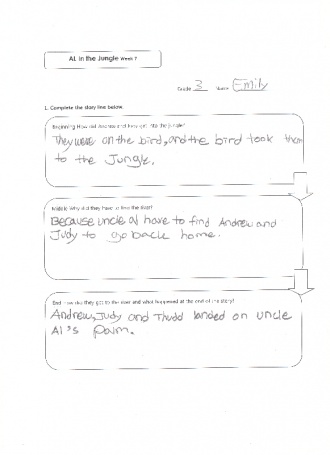 AL in the Jungle Week 7
Grade 3 Name Emily
1. Complete the story line below.
Beginning How did Andrew and Judy get into the jungle?
They were on the bird, and the bird took them
to the Jungle.
Middle Why did they have to find the river?
Because uncle al have to find Andrew and
Judy to go back home.
End How did they get to the river and what happened at the end of the story?
Andrew, Judy and Thudd landed on uncle
Al's palm.